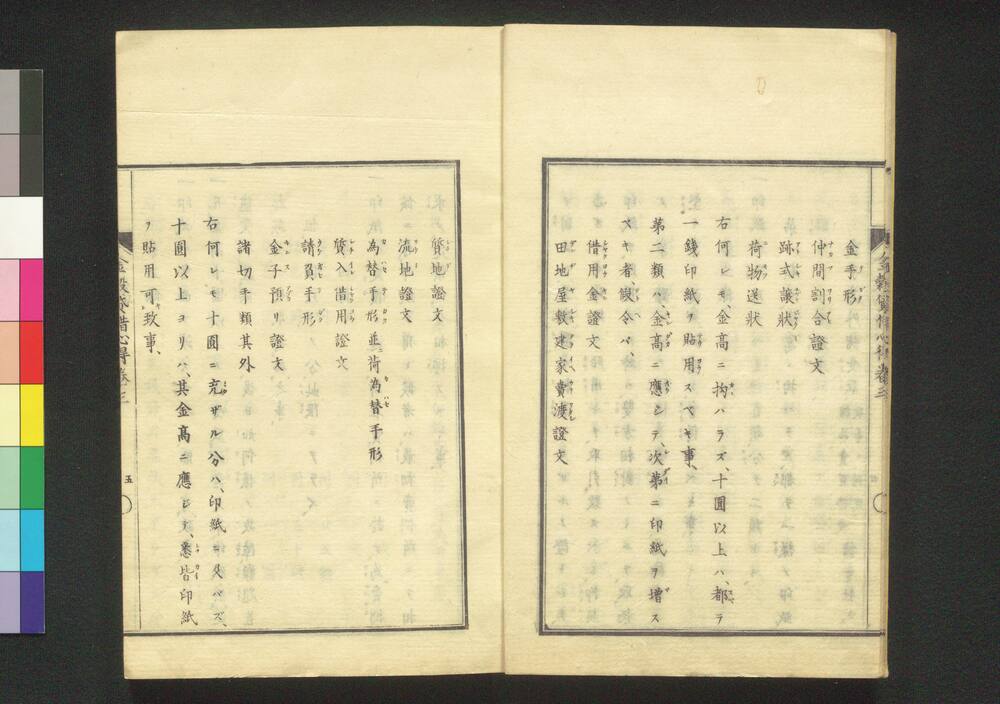 金手形
仲間割合證文
跡式讓狀
荷物送狀
右何レモ、金高ニ拘ハラズ、十圓以上ハ、都テ
一錢印紙ヲ貼用スベキ事、
第二類ハ、金高ニ應シテ、次第ニ印紙ヲ増ス
ベキ者、假令バ、
借用金證文
田地屋敷建家賣渡證文
質地證文
流地證文
為替手形並荷為替手形
質入借用證文
請負手形
金子預リ證文
諸切手類其外
右何レモ十圓ニ充ザル分ハ、印紙ニ及バズ、
十圓以上ヨリハ、其金高ニ應ジテ、悉皆印紙
ヲ貼用可致事、
金穀貸借心得卷三
五